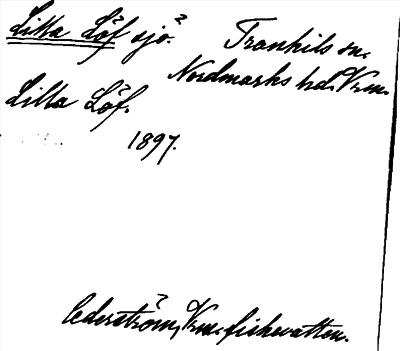 Lilla Löf sjö.
Trankils sn.
Nordmarks hd. Vrm.
Lilla Löf.
1897.
Cederström, Vrm. fiskevatten.